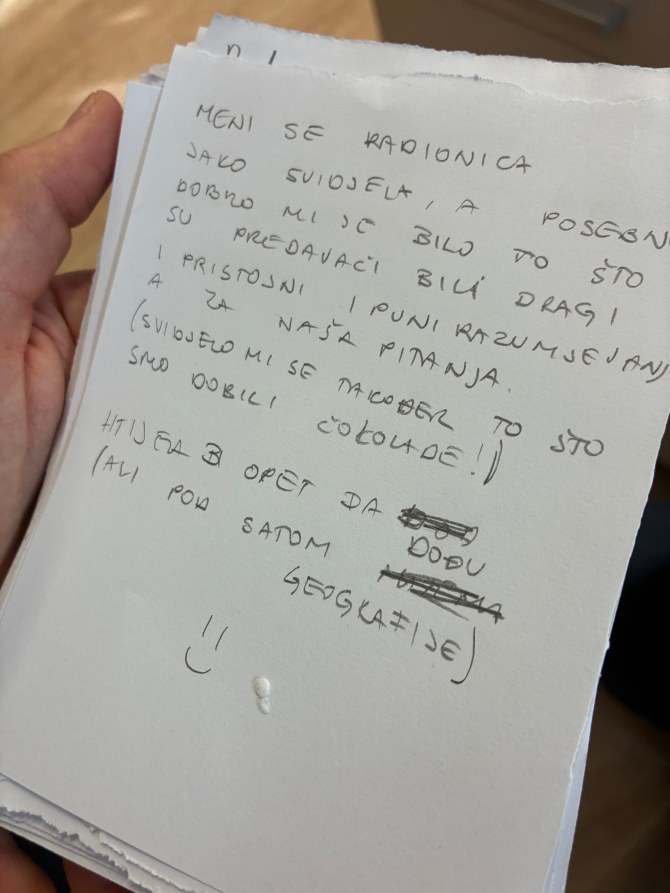 MENI SE RADIONICA
JAKO SVIDJELA, A POSEBN
DOBRO MI JE BILO TO ŠTO
SU PREDAVAČI BILI DRAGI
I PRISTOJNI I PUNI RAZUMJEVANJ
A ZA NAŠA PITANJA.
(SVIDJELO MI SE TAKOĐER TO ŠTO
SMO DOBILI ČOKOLADE!)
HTIJELA BI OPET DA
DOĐU
(ALI POD SATOM
GEOGRAFIJE)